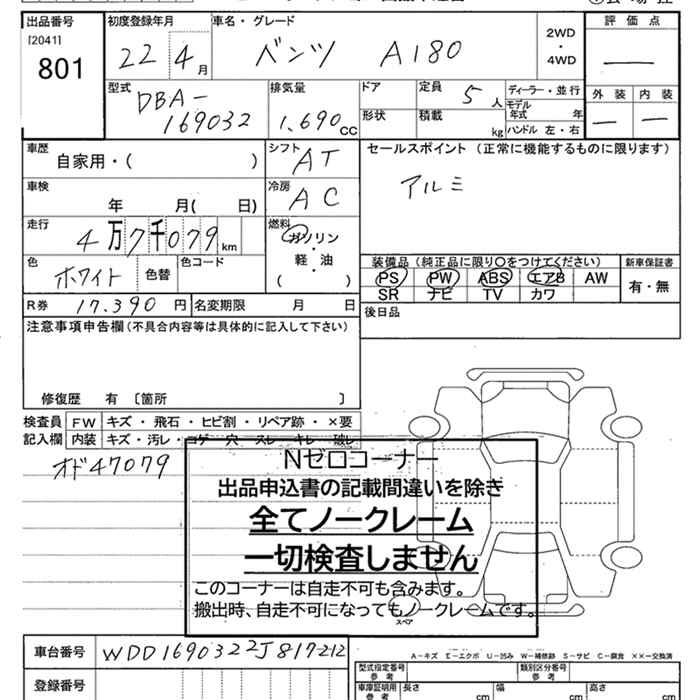 出品番号 初度登録年月 車名・グレード 評価点
[2041]
801
22 4月 ベンツ A180 2WD・4WD ―
型式 排気量 ドア 定員 5人 ディーラー・並行 外装 内装
DBA-169032 1,690cc 形状 積載 kg モデル年式 年 ― ―
ハンドル 左・右
車歴 シフト セールスポイント(正常に機能するものに限ります)
自家用・( ) AT
アルミ
車検 年 月( 日) 冷房 AC
走行 4万7千079km 燃料 ガソリン・軽・油
( )
色 ホワイト 色替 色コード
装備品(純正品に限り○をつけてください) 新車保証書
PS PW ABS エアB AW 有・無
SR ナビ TV カワ
R券 17,390円 名変期限 月 日
後日品
注意事項申告欄(不具合内容等は具体的に記入して下さい)
修復歴 有 〔箇所 〕
検査員 FW キズ・飛石・ヒビ割・リペア跡・×要
記入欄 内装 キズ・汚レ・コゲ・穴・スレ・キレ・破レ
オド47079
Nゼロコーナー
出品申込書の記載間違いを除き
全てノークレーム
一切検査しません
このコーナーは自走不可も含みます。
搬出時、自走不可になってもノークレームです。
スペア
車台番号 WDD1690322J817212
A-キズ E-エクボ U-凹み W-補修跡 S-サビ C-腐食 ××-交換済
型式指定番号 参考 類別区分番号 参考
登録番号 車庫証明用 参考 長さ cm 幅 cm 高さ cm